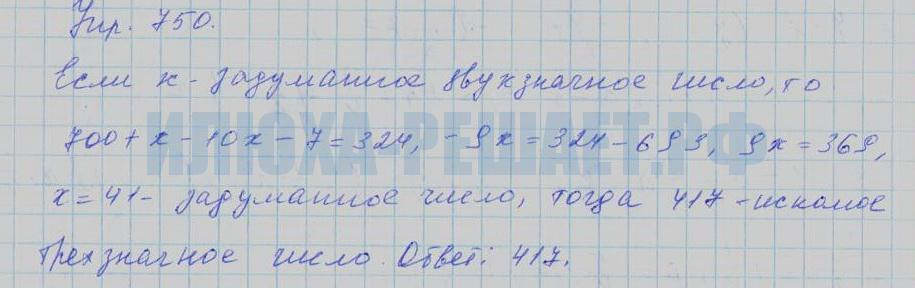 Упр. 750.
Если х - задуманное двухзначное число, то
700 + х - 10х - 7 = 324, - 9х = 324 - 693, 9х = 369,
х = 41 - задуманное число, тогда 417 - искомое
трехзначное число. Ответ: 417.
ИЛЮХА-РЕШАЕТ.РФ